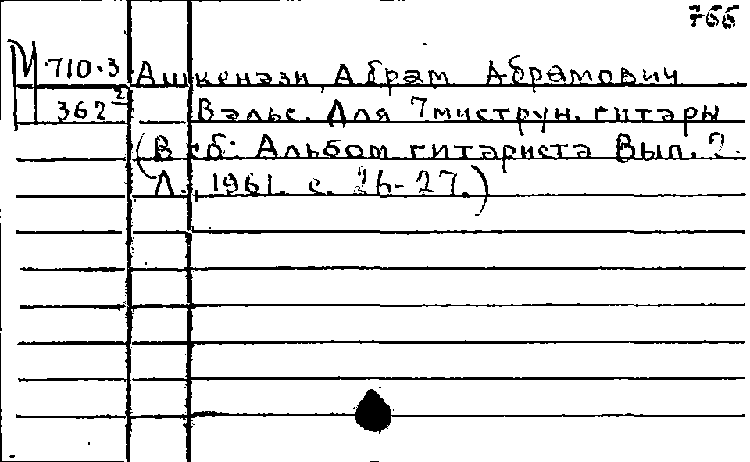 766
М 710-3 Ашкенази, Абрам Абрамович
362² Вальс. Для 7миструн. гитары
(В сб: Альбом гитариста Вып. 2.
Л., 1961. с. 26-27.)